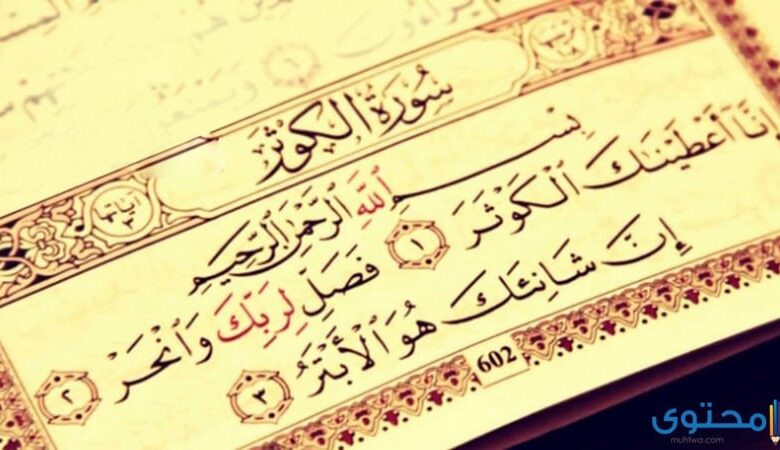 سُورَةُ الكَوْثَرِ
بِسْمِ ٱللَّهِ ٱلرَّحْمَٰنِ ٱلرَّحِيمِ
إِنَّا أَعْطَيْنَاكَ ٱلْكَوْثَرَ ١ فَصَلِّ لِرَبِّكَ وَٱنْحَرْ ٢
إِنَّ شَانِئَكَ هُوَ ٱلْأَبْتَرُ ٣
602
محتوى
muhtwa.com